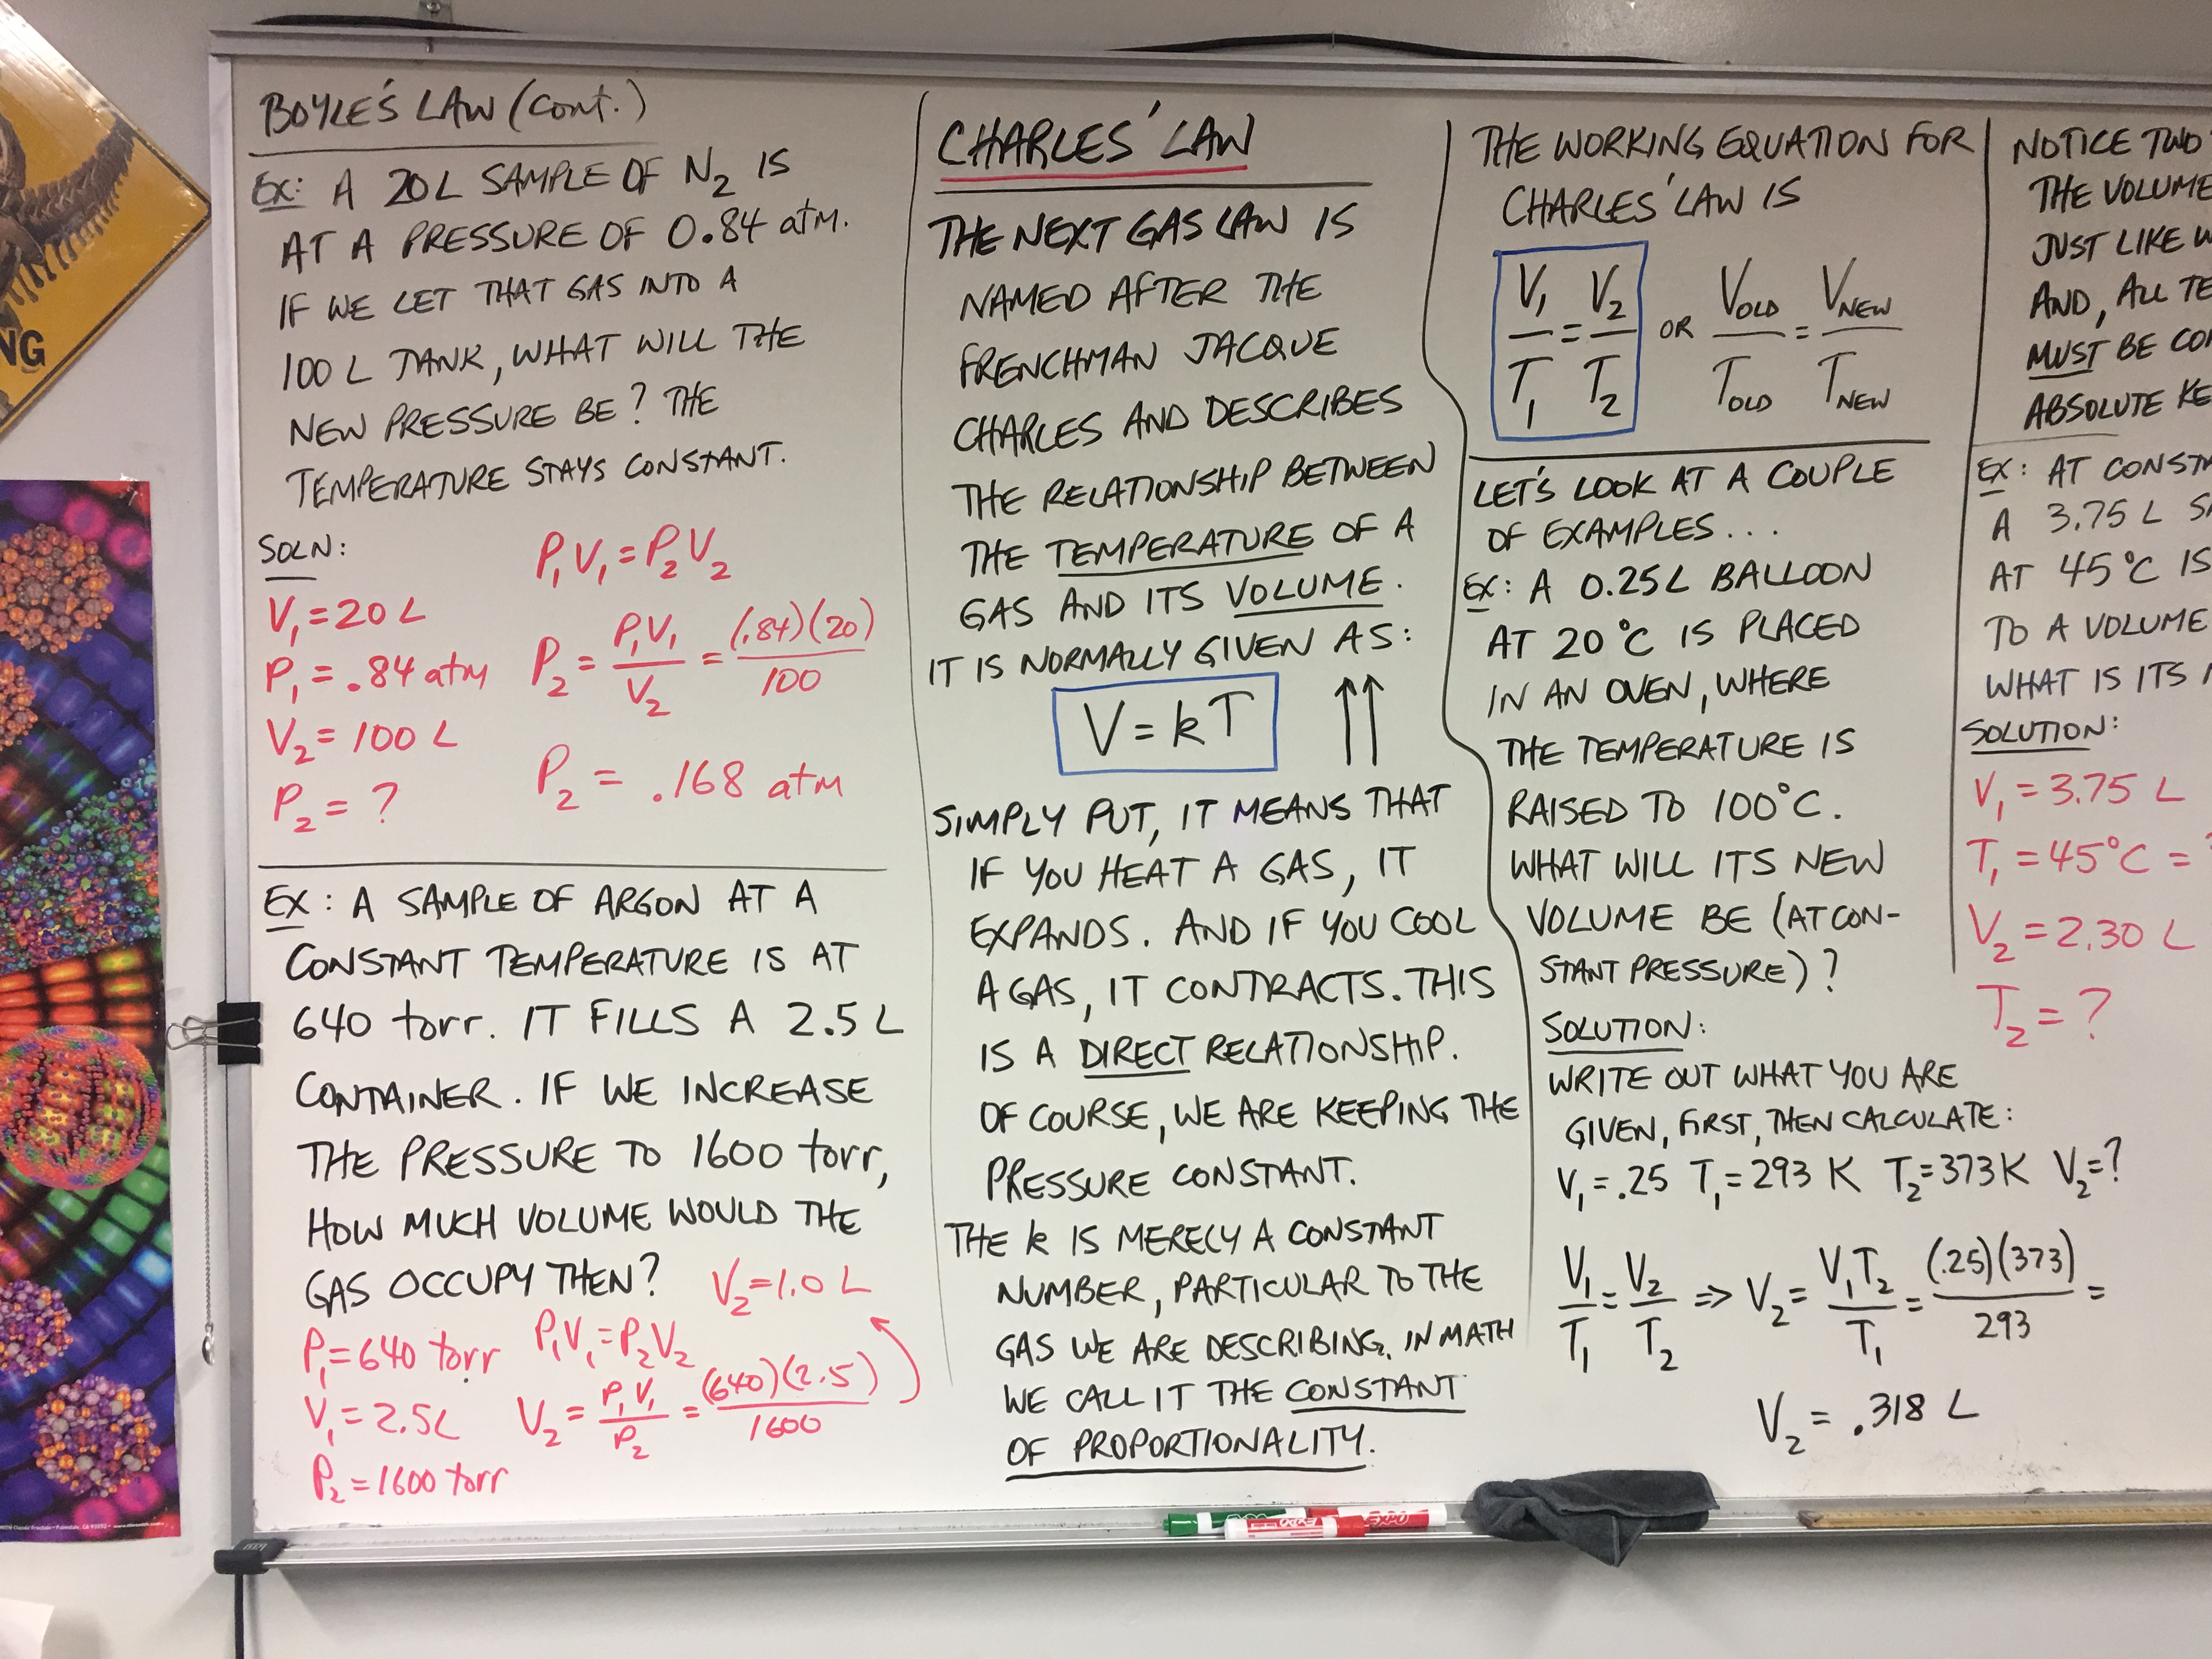 NG
BOYLE'S LAW (CONT.)
EX: A 20L SAMPLE OF N₂ IS
AT A PRESSURE OF 0.84 atm.
IF WE LET THAT GAS INTO A
100 L TANK, WHAT WILL THE
NEW PRESSURE BE? THE
TEMPERATURE STAYS CONSTANT.
SOLN:
P₁V₁ = P₂V₂
V₁ = 20 L
P₁ = .84 atm
V₂ = 100 L
P₂ = ?
P₂ = P₁V₁/V₂ = (.84)(20)/100
P₂ = .168 atm
EX: A SAMPLE OF ARGON AT A
CONSTANT TEMPERATURE IS AT
640 torr. IT FILLS A 2.5 L
CONTAINER. IF WE INCREASE
THE PRESSURE TO 1600 torr,
HOW MUCH VOLUME WOULD THE
GAS OCCUPY THEN? V₂ = 1.0 L
P₁ = 640 torr
V₁ = 2.5L
P₂ = 1600 torr
P₁V₁ = P₂V₂
V₂ = P₁V₁/P₂ = (640)(2.5)/1600
CHARLES' LAW
THE NEXT GAS LAW IS
NAMED AFTER THE
FRENCHMAN JACQUE
CHARLES AND DESCRIBES
THE RELATIONSHIP BETWEEN
THE TEMPERATURE OF A
GAS AND ITS VOLUME.
IT IS NORMALLY GIVEN AS:
V = kT ↑↑
SIMPLY PUT, IT MEANS THAT
IF YOU HEAT A GAS, IT
EXPANDS. AND IF YOU COOL
A GAS, IT CONTRACTS. THIS
IS A DIRECT RELATIONSHIP.
OF COURSE, WE ARE KEEPING THE
PRESSURE CONSTANT.
THE k IS MERELY A CONSTANT
NUMBER, PARTICULAR TO THE
GAS WE ARE DESCRIBING. IN MATH
WE CALL IT THE CONSTANT
OF PROPORTIONALITY.
THE WORKING EQUATION FOR
CHARLES' LAW IS
V₁/T₁ = V₂/T₂ OR V OLD/T OLD = V NEW/T NEW
LET'S LOOK AT A COUPLE
OF EXAMPLES...
EX: A 0.25L BALLOON
AT 20°C IS PLACED
IN AN OVEN, WHERE
THE TEMPERATURE IS
RAISED TO 100°C.
WHAT WILL ITS NEW
VOLUME BE (AT CON-
STANT PRESSURE)?
SOLUTION:
WRITE OUT WHAT YOU ARE
GIVEN, FIRST, THEN CALCULATE:
V₁ = .25 T₁ = 293 K T₂ = 373K V₂ = ?
V₁/T₁ = V₂/T₂ ⇒ V₂ = V₁T₂/T₁ = (.25)(373)/293 =
V₂ = .318 L
NOTICE TWO
THE VOLUME
JUST LIKE
AND, ALL
MUST BE
ABSOLUTE
EX: AT
A 3.75 L
AT 45°C IS
TO A VOLUME
WHAT IS ITS
SOLUTION:
V₁ = 3.75 L
T₁ = 45°C =
V₂ = 2.30 L
T₂ = ?
EXPO